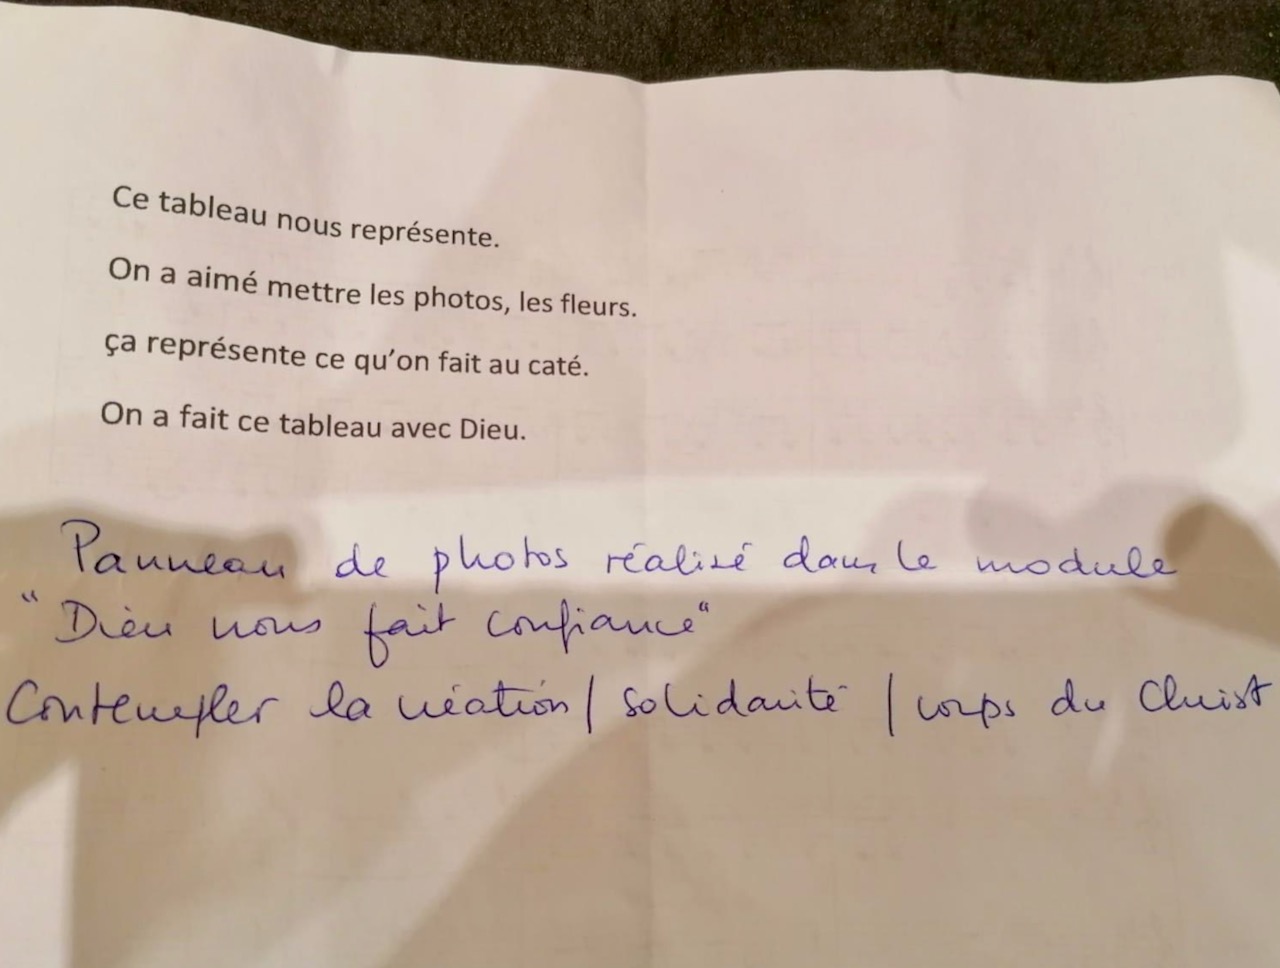 Ce tableau nous représente.
On a aimé mettre les photos, les fleurs.
ça représente ce qu'on fait au caté.
On a fait ce tableau avec Dieu.
Panneau de photos réalisé dans le module
"Dieu nous fait confiance"
Contempler la création / solidarité / corps du Christ